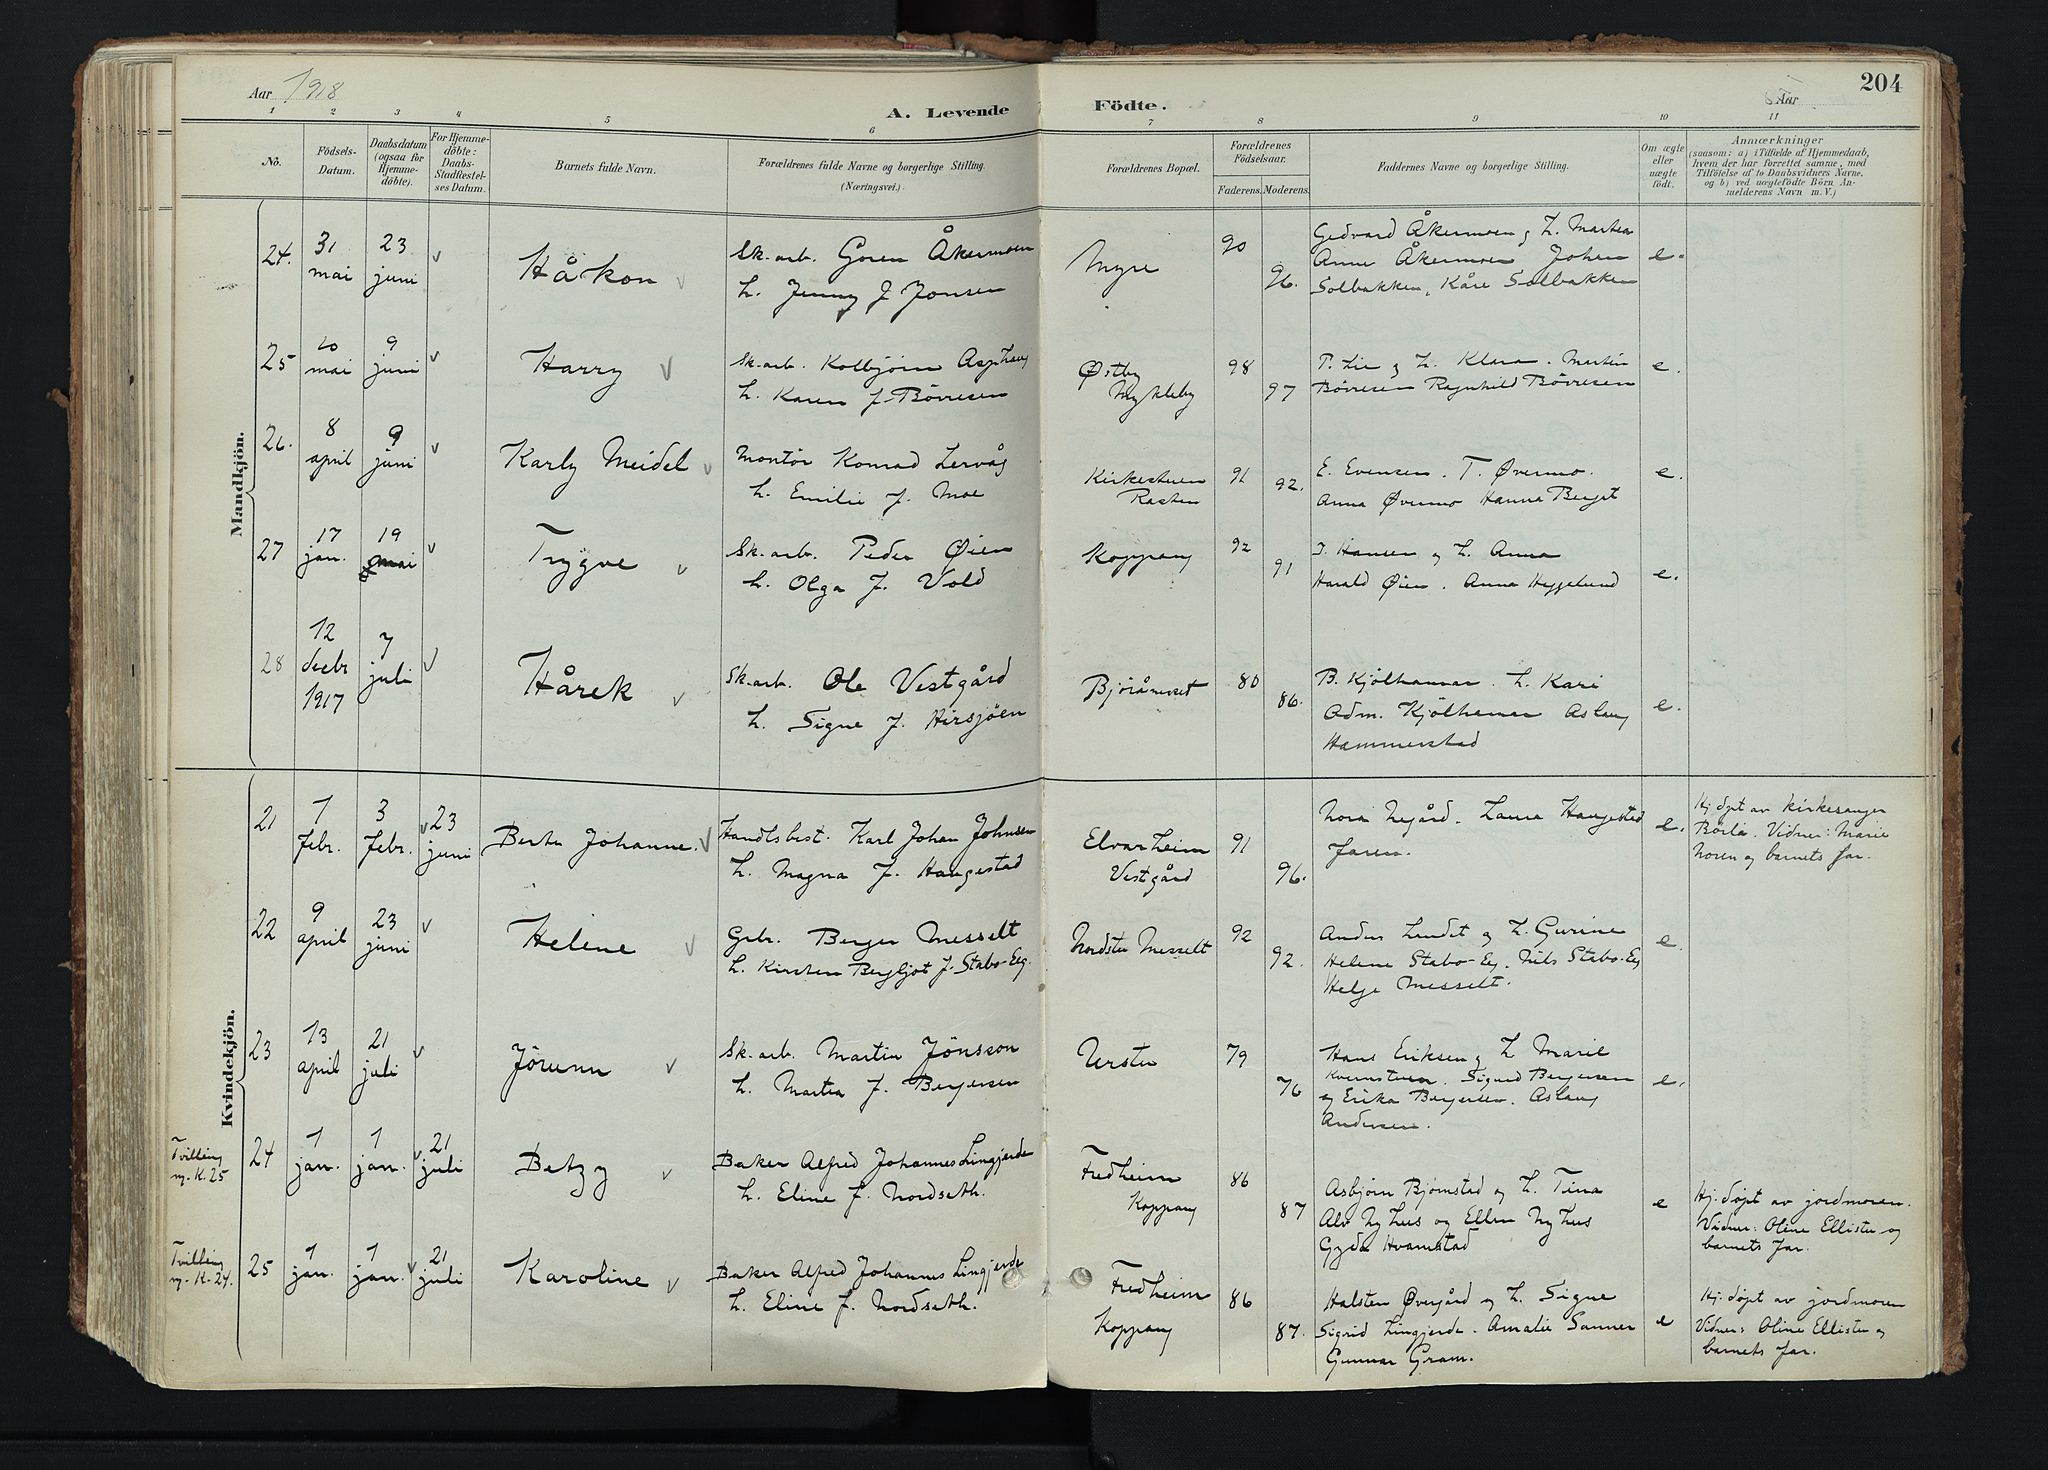 Aar 1918
A. Levende Födte.
Aar
204
1 2 3 4 5 6 7 8 9 10 11
No.
Födsels-
Datum.
Daabsdatum
(ogsaa for
Hjemme-
döbte).
For Hjemme-
döbte:
Daabs-
Stadfæstel-
ses Datum.
Barnets fulde Navn.
Forældrenes fulde Navne og borgerlige Stilling.
(Næringsvei.)
Forældrenes Bopæl.
Forældrenes
Födselsaar.
Faderens. Moderens.
Faddernes Navne og borgerlige Stilling.
Om ægte
eller
uægte
født.
Anmærkninger
(saasom: a) i Tilfælde af Hjemmedaab,
hvem der har forrettet samme, med
Tilføielse af to Daabsvidners Navne,
og b) ved uægtefödte Börn An-
melderens Navn m. V.)
Mandkjön.
24. 31 mai 23 juni v Håkon v
Sk.arb. Gören Åkermoen
h. Jenny f. Jonsen
Myre 90 96.
Gedvard Åkermoen og h. Martea
Anne Åkermoen Johan
Solbakken, Kåre Solbakken
e.
25 20 mai 9 juni v Harry v
Sk.arb. Kolbjörn Asphaug
h. Karen f. Börresen
Østby
Mykleby
98 97
P. Lie og h. Klara. Martin
Börresen Ragnhild Börresen
e.
26. 8 april 9 juni v Karly Meidel v
Montör Konrad Lervåg
h. Emilie f. Moe
Kirkestuen
Rasten
91 92.
E. Evensen. T. Øvermo.
Anna Øvermo Hanna Berget
e.
27 17 jan. 19 mai v Trygve v
Sk.arb. Peder Øien
h. Olga f. Vold
Koppang 92 91
J. Hansen og h. Anna
Harald Øien. Anna Heggelund
e.
28 12 decbr 1917 7 juli v Hårek v
Sk.arb. Ole Vestgård
h. Signe f. Hirsjöen
Björåneset 80 86.
B. Kjölhamar. h. Kari
Adm. Kjölhamar Aslaug
Hammerstad
e.
Kvindekjön.
21 1 febr. 3 febr. v 23 juni Berta Johanne. v
Handlsbest. Karl Johan Johnsen
h. Magna f. Haugestad
Elvarheim
Vestgård
91 96.
Nora Nygård. Laura Haugestad
Faren.
e.
Hj. döpt av kirkesanger
Börla. Vidner: Marie
Noren og barnets far.
22 9 april 23 juni v Helene v
Grbr. Berger Messelt
h. Kirsten Bergljot f. Stabo-Eeg.
Nordstu Messelt 92 92.
Anders Lundet og h. Gurine
Helene Stabo-Eeg. Nils Stabo-Eeg
Helge Messelt.
e.
23 13 april 21 juli v Jörunn v
Sk.arb. Martin Jönsson
h. Martea f. Bergersen
Urstu 79 76
Hans Eriksen og h Marie
Kvernstuen. Sigurd Bergersen
og Erika Bergersen. Aslaug
Andersen.
e.
Tvilling
m. K. 25
24 1 jan. 1 jan. v 21 juli Betzy v
Baker Alfred Johannes Lingjerde
h. Eline f. Nordseth.
Fredheim
Koppang
86 87
Asbjörn Bjørnstad og h. Tina
Alv Nyhus og Ellen Nyhus
Gyda Hvamstad
e
Hj. döpt av jordmoren.
Vidner: Oline Ellistu og
barnets far.
Tvilling
m. K. 24.
25 1 jan. 1 jan. v 21 juli Karoline v
Baker Alfred Johannes Lingjerde
h. Eline f. Nordseth.
Fredheim
Koppang
86 87.
Halsten Øvergård og h. Signe
Sigrid Lingjerde. Amalie Sanner
Gunnar Gram.
e
Hj. döpt av jordmoren
Vidner: Oline Ellistu og
barnets far.